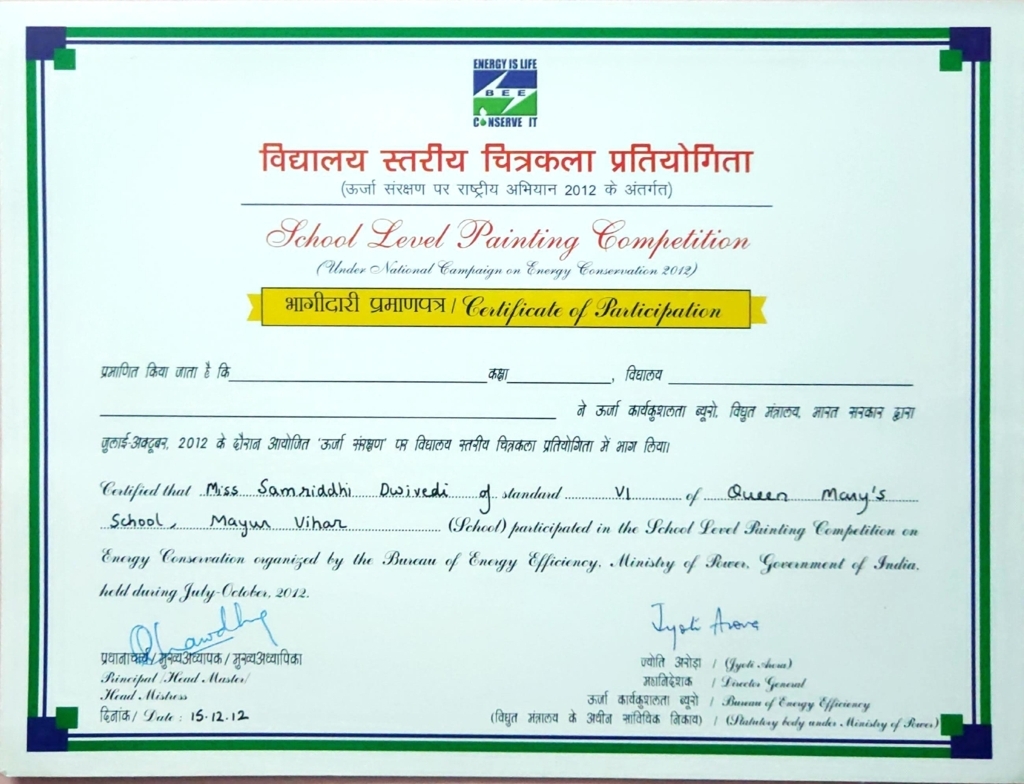 ENERGY IS LIFE
BEE
CONSERVE IT
विद्यालय स्तरीय चित्रकला प्रतियोगिता
(ऊर्जा संरक्षण पर राष्ट्रीय अभियान 2012 के अंतर्गत)
School Level Painting Competition
(Under National Campaign on Energy Conservation 2012)
भागीदारी प्रमाणपत्र / Certificate of Participation
प्रमाणित किया जाता है कि कक्षा , विद्यालय
ने ऊर्जा कार्यकुशलता ब्यूरो, विद्युत मंत्रालय, भारत सरकार द्वारा
जुलाई-अक्टूबर, 2012 के दौरान आयोजित 'ऊर्जा संरक्षण' पर विद्यालय स्तरीय चित्रकला प्रतियोगिता में भाग लिया।
Certified that Miss Samriddhi Dwivedi of standard VI of Queen Mary's
School, Mayur Vihar (School) participated in the School Level Painting Competition on
Energy Conservation organized by the Bureau of Energy Efficiency, Ministry of Power, Government of India,
held during July-October, 2012.
Jyoti Arora
प्रधानाचार्य / मुख्यअध्यापक / मुख्यअध्यापिका
Principal /Head Master/
Head Mistress
दिनांक / Date : 15.12.12
ज्योति अरोड़ा / (Jyoti Arora)
महानिदेशक / Director General
ऊर्जा कार्यकुशलता ब्यूरो / Bureau of Energy Efficiency
(विद्युत मंत्रालय के अधीन सांविधिक निकाय) / (Statutory body under Ministry of Power)